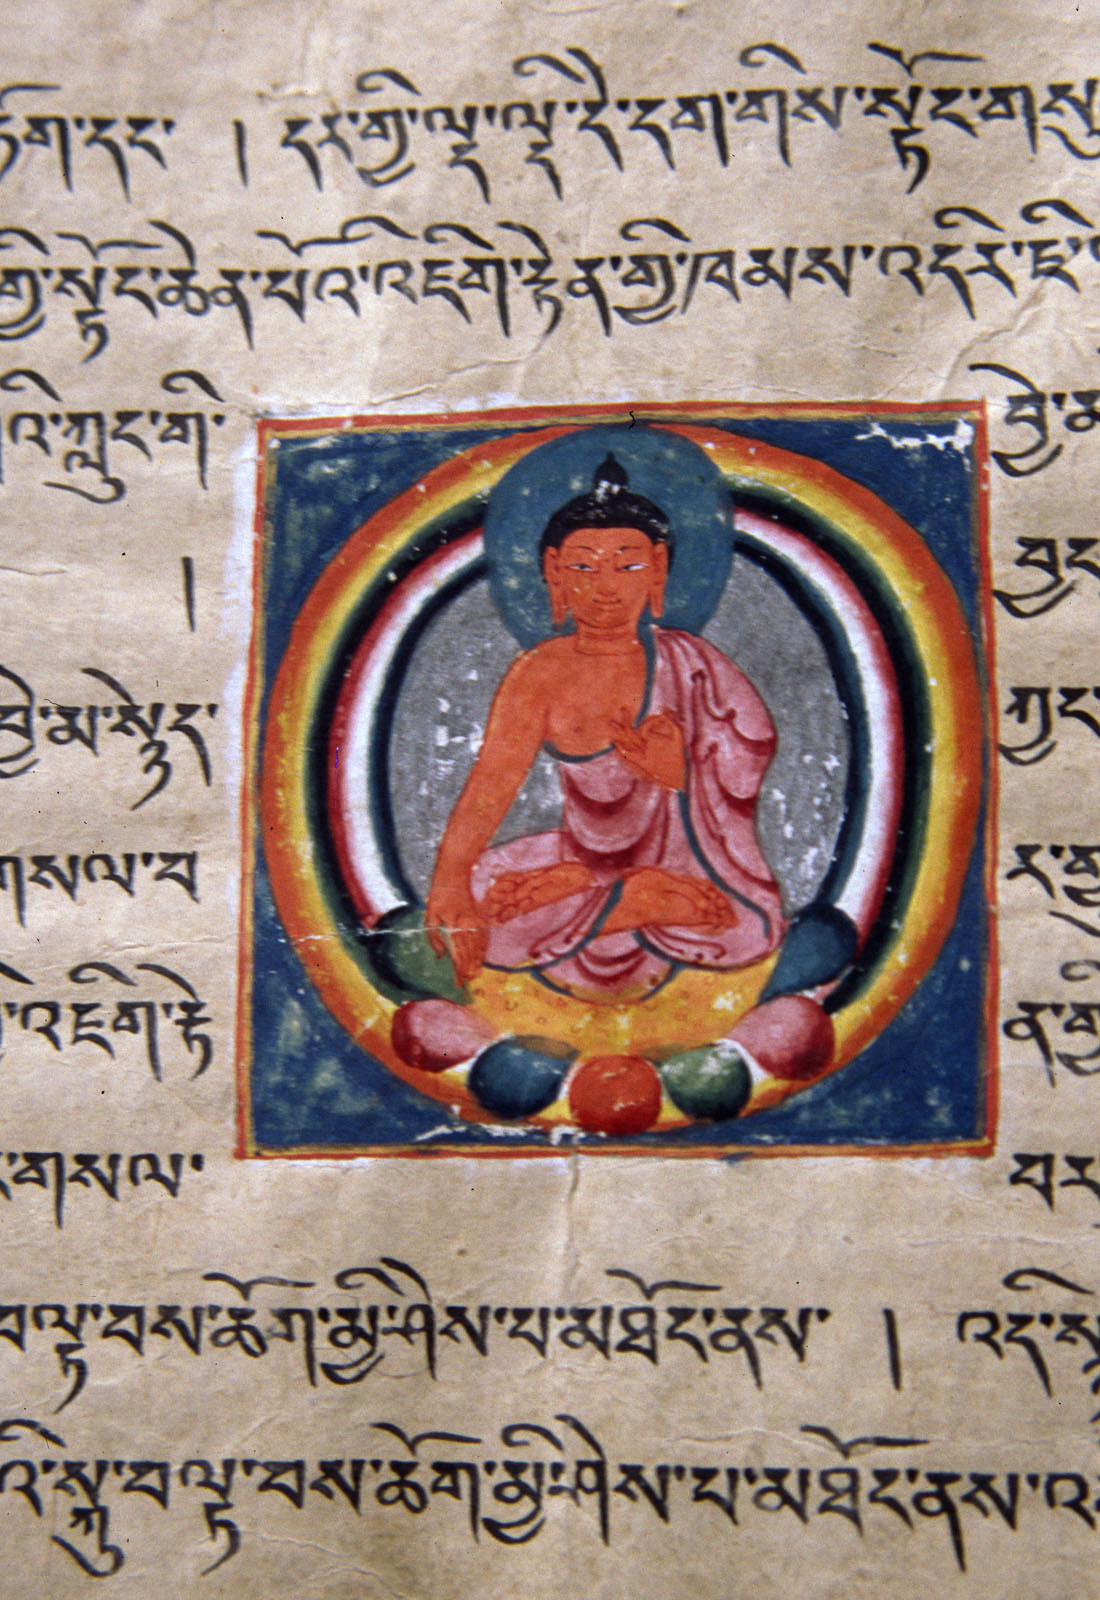 ཏོག་དང་ ། དར་གྱི་ལྡ་ལྡི་དེ་དག་གིས་སྟོང་གསུ
གྱི་སྟོང་ཆེན་པོའི་འཇིག་རྟེན་གྱི་ཁམས་འདིར་ཇི་
འི་ཀླུང་གི་ བྱེ་མ
། བྱང
བྱེ་མ་སྙེད་ ཀྱང
གསལ་བ ར་གྱ
འི་འཇིག་རྟེ ན་གྱི
ར་གསལ་ བར
བལྟ་བས་ཆོག་མྱི་ཤེས་པ་མཐོང་ནས་ ། འདི་སྙ
འི་སྐུ་བལྟ་བས་ཆོག་མྱི་ཤེས་པ་མཐོང་ནས་འ